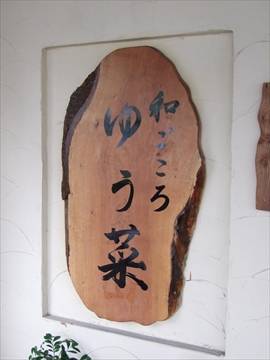 和ごころ
ゆう菜